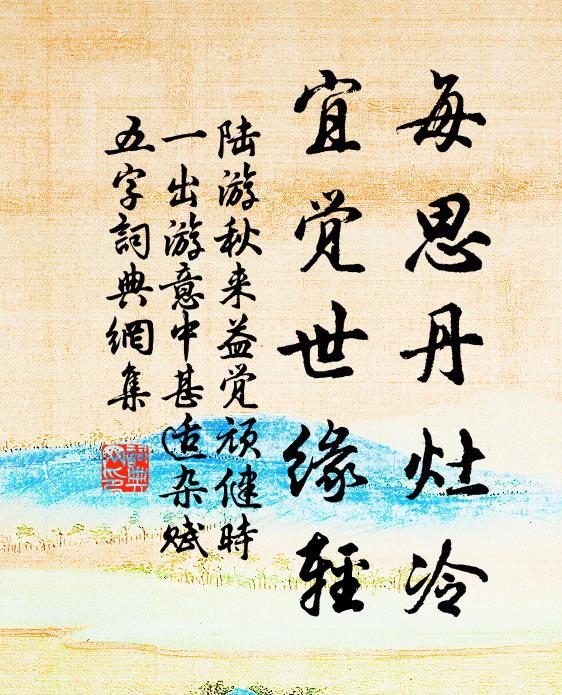 每思丹灶冷
宜觉世缘轻
陆游秋来益觉顽健时
一出游意中甚适杂赋
五字詞典網集